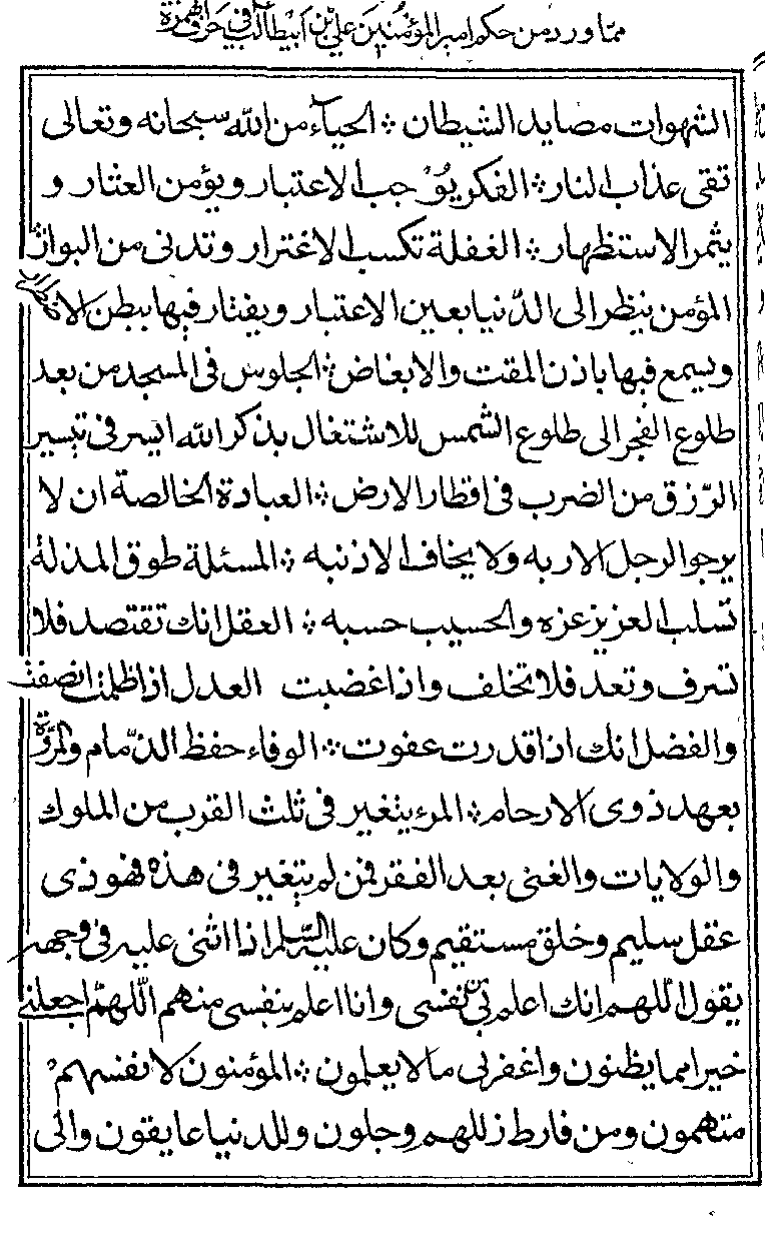 مما ورد من حكم امير المؤمنين علي بن ابيطالب في حرف الهمزة
الشهوات مصايد الشيطان ؞ الحيآء من الله سبحانه وتعالى
تقى عذاب النار ؞ الفكر يوجب الاعتبار ويؤمن العثار و
يثمر الاستظهار ؞ الغفلة تكسب الاغترار وتدنى من البوار
المؤمن ينظر الى الدّنيا بعين الاعتبار ويقتار فيها ببطن
ويسمع فيها باذن المقت والابغاض ؞ الجلوس فى المسجد من بعد
طلوع الفجر الى طلوع الشمس للاشتغال بذكر الله ايسر فى تيسير
الرّزق من الضرب فى اقطار الارض ؞ العبادة الخالصة ان لا
يرجو الرجل الا ربه ولا يخاف الا ذنبه ؞ المسئلة طوق المذلة
تسلب العزيز عزه والحسيب حسبه ؞ العقل انك تقتصد فلا
تسرف وتعد فلا تخلف واذا غضبت العدل اذا ظلمت انصفت
والفضل انك اذا قدرت عفوت ؞ الوفاء حفظ الذّمام والمروّة
بعهد ذوى الارحام ؞ المرء يتغير فى ثلث القرب من الملوك
والولايات والغنى بعد الفقر فمن لم يتغير فى هذه فهو ذى
عقل سليم وخلق مستقيم وكان عليه السلم اذا اثنى عليه فى وجهه
يقول اللهم انك اعلم بى نفسى وانا اعلم بنفسى منهم اللهمّ اجعلنى
خيرا مما يظنون واغفر لى ما لا يعلمون ؞ المؤمنون لانفسهم
متهمون ومن فارط زللهم وجلون وللدنيا عايقون والى